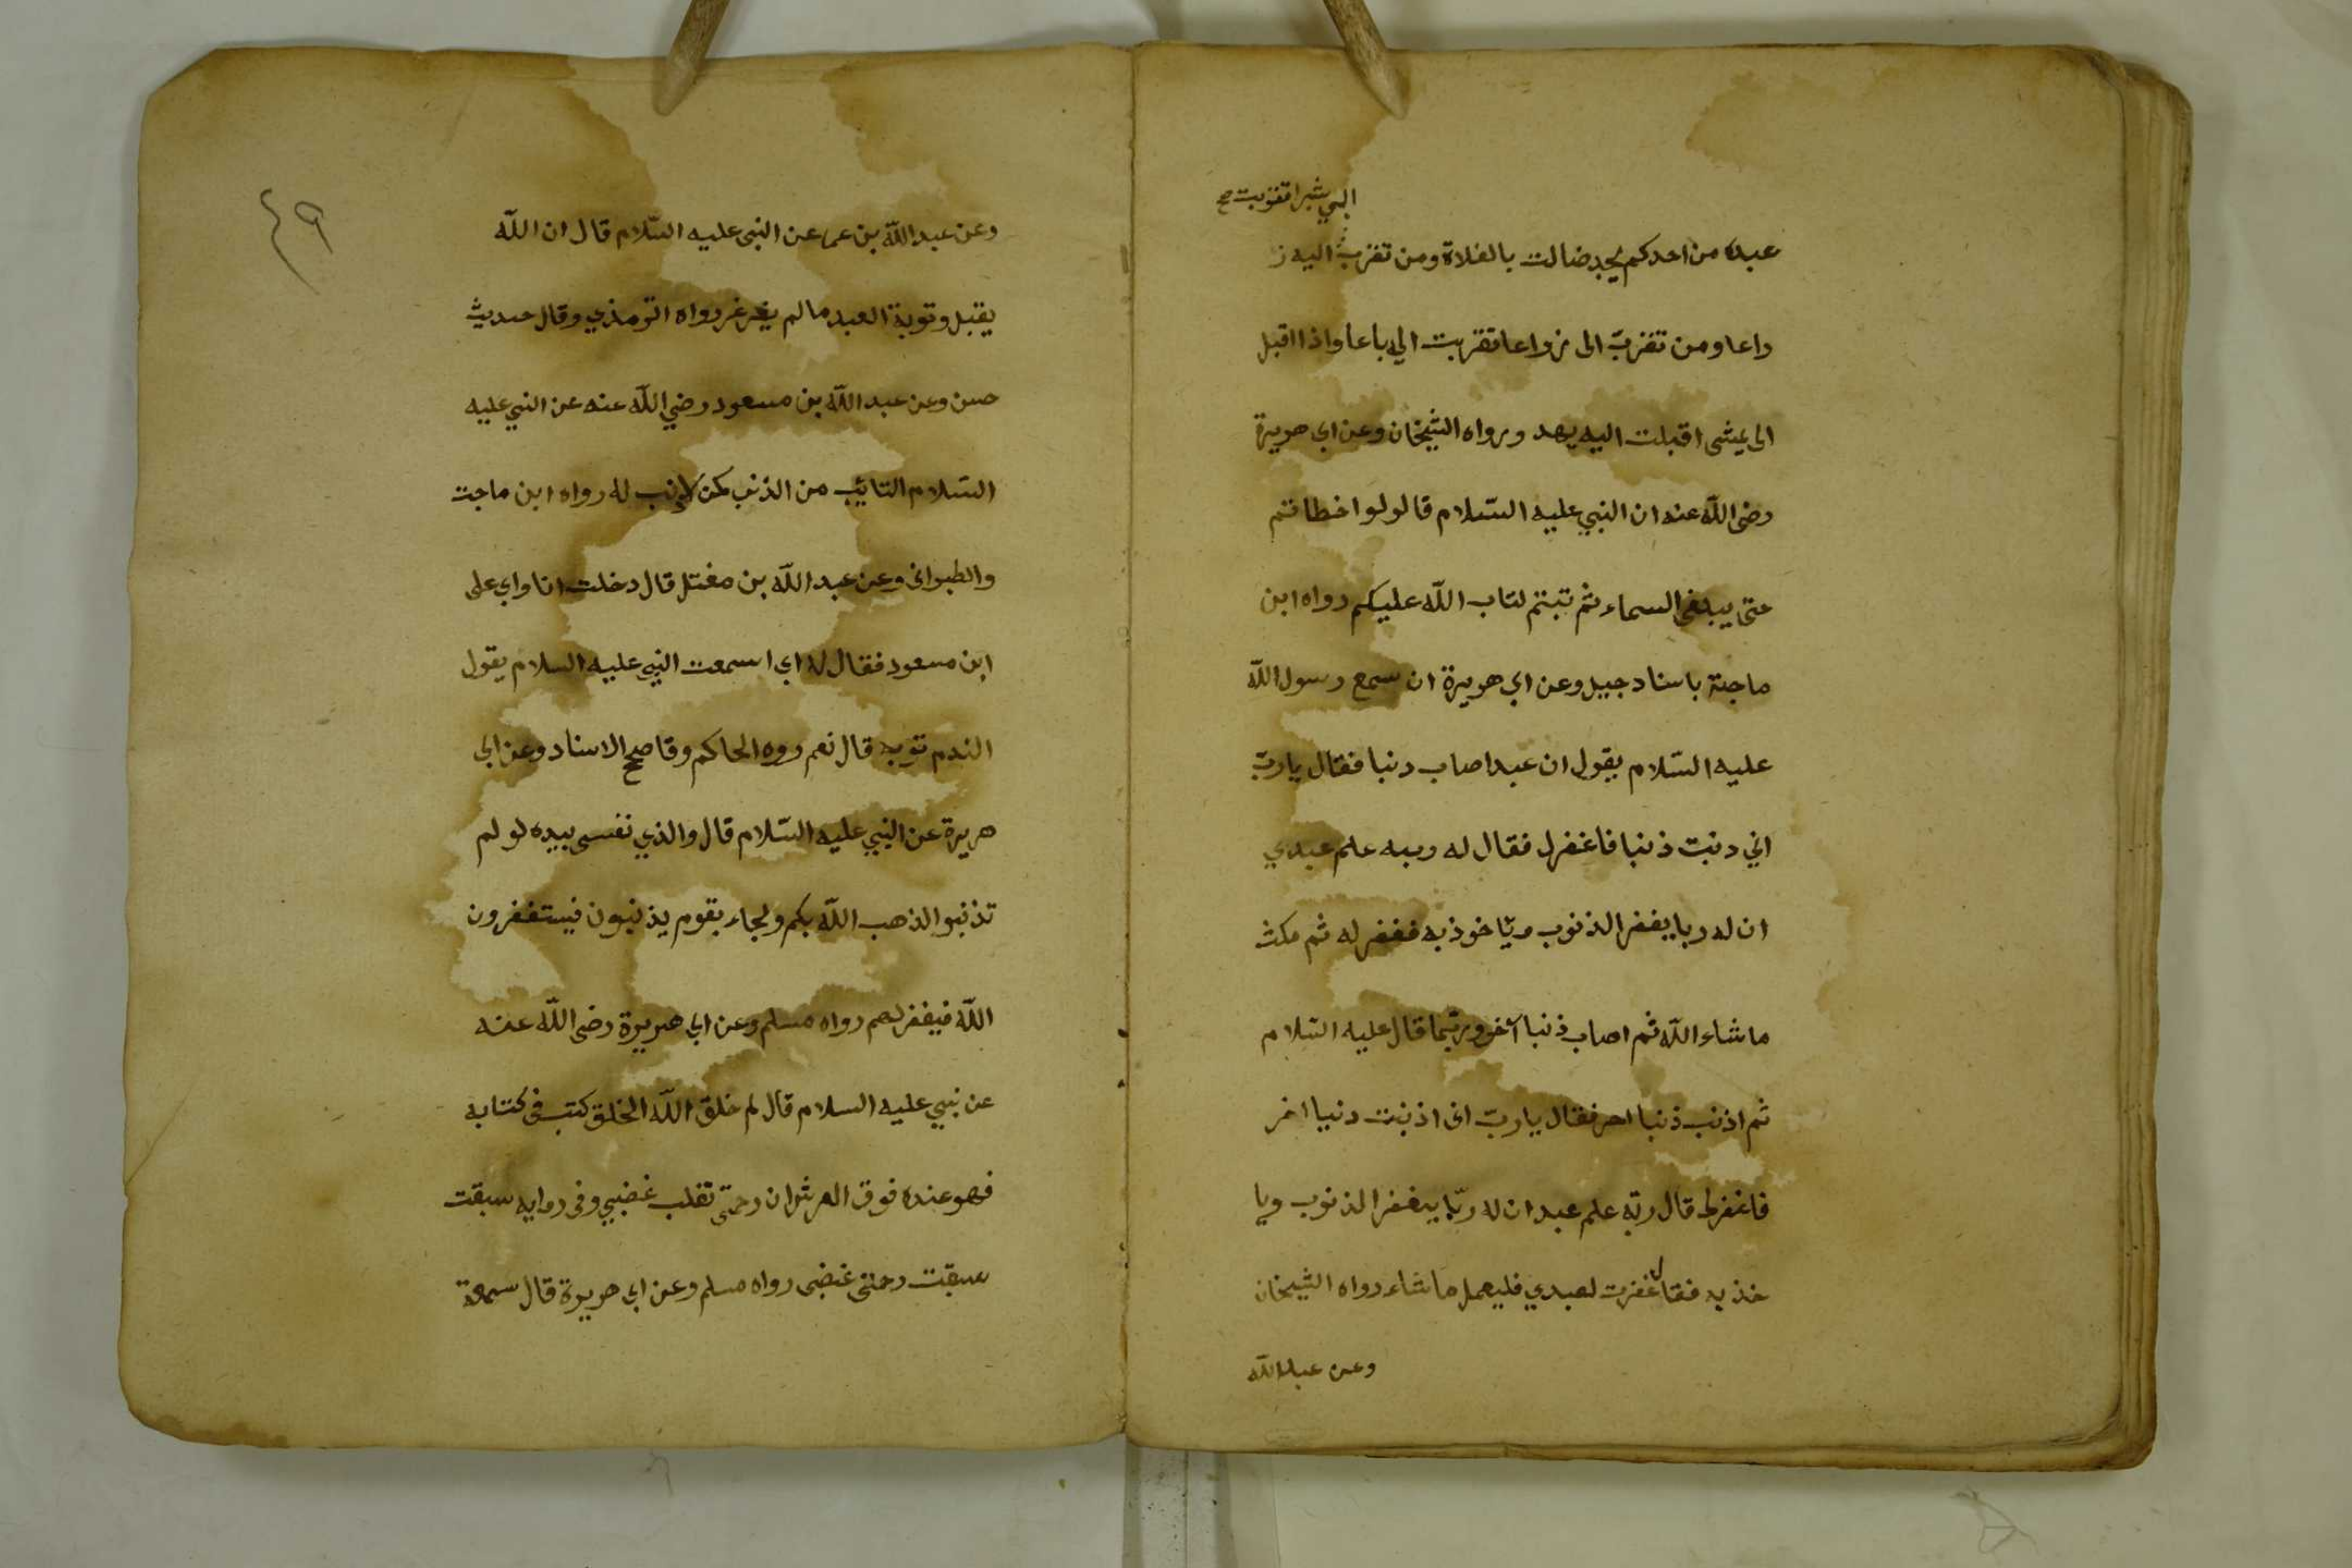 الي شبرا تقربت صح
عبده من احدكم يجد ضالت بالفلاة ومن تقرب اليه ز
راعا ومن تقربّ الى زراعا تقربت اليه باعا واذا اقبل
الى يمشى اقبلت اليه يهد ورواه الشيخان وعن ابي هريرة
رضى اللّه عنه ان النبي عليه السّلام قال لو اخطاتم
حتى يبلغ السماء ثم تبتم لتاب اللّه عليكم رواه ابن
ماجة باسناد جيد وعن ابي هريرة ان سمع رسول اللّه
عليه السّلام يقول ان عبدا صاب دنبا فقال ياربّ
اني دنبت ذنبا فاغفرل فقال له وربه علم عبدي
ان له ربا يغفر الذنوب ويّا خوذ به فغفر له ثم مكث
ماشاء اللّه ثم اصاب ذنبا آخر وربّما قال عليه السّلام
ثم اذنب ذنبا احر فقال ياربّ انى اذنبت دنبا اخر
فاغفرط قال ربّه علم عبد ان له ربّا يغفر الذنوب ويا
خذ به فقال غفرت لعبدي فليعمل ماشاء رواه الشيخان
وعن عبد اللّه
٤٩
وعن عبد اللّه بن عمر عن النبى عليه السّلام قال ان اللّه
يقبل وتوبة العبد مالم يغرغر رواه الترمذي وقال حديث
حسن وعن عبد اللّه بن مسعود رضي اللّه عنه عن النبي عليه
السّلام التايب من الذنب كمن لاذنب له رواه ابن ماجت
والطبرانى وعن عبد اللّه بن مغتل قال دخلت انا وابي على
ابن مسعود فقال له ابي ا سمعت النبي عليه السلام يقول
الندم توبه قال نعم روه الحاكم وقا صحح الاسناد وعن ابي
هريرة عن النبي عليه السّلام قال والذي نفسى بيده لو لم
تذنبوا لذهب اللّه بكم ولجاء بقوم يذنبون فيستغفرون
اللّه فيغفر لهم رواه مسلم وعن ابي هريرة رضى اللّه عنه
عن نبي عليه السلام قال لم خلق اللّه الخلق كتب فى كتابه
فهو عنده فوق العرش ان رحمتى تغلب غضبي وفى روايه سبقت
سبقت رحمتى غضبى رواه مسلم وعن ابي هريرة قال سمعة